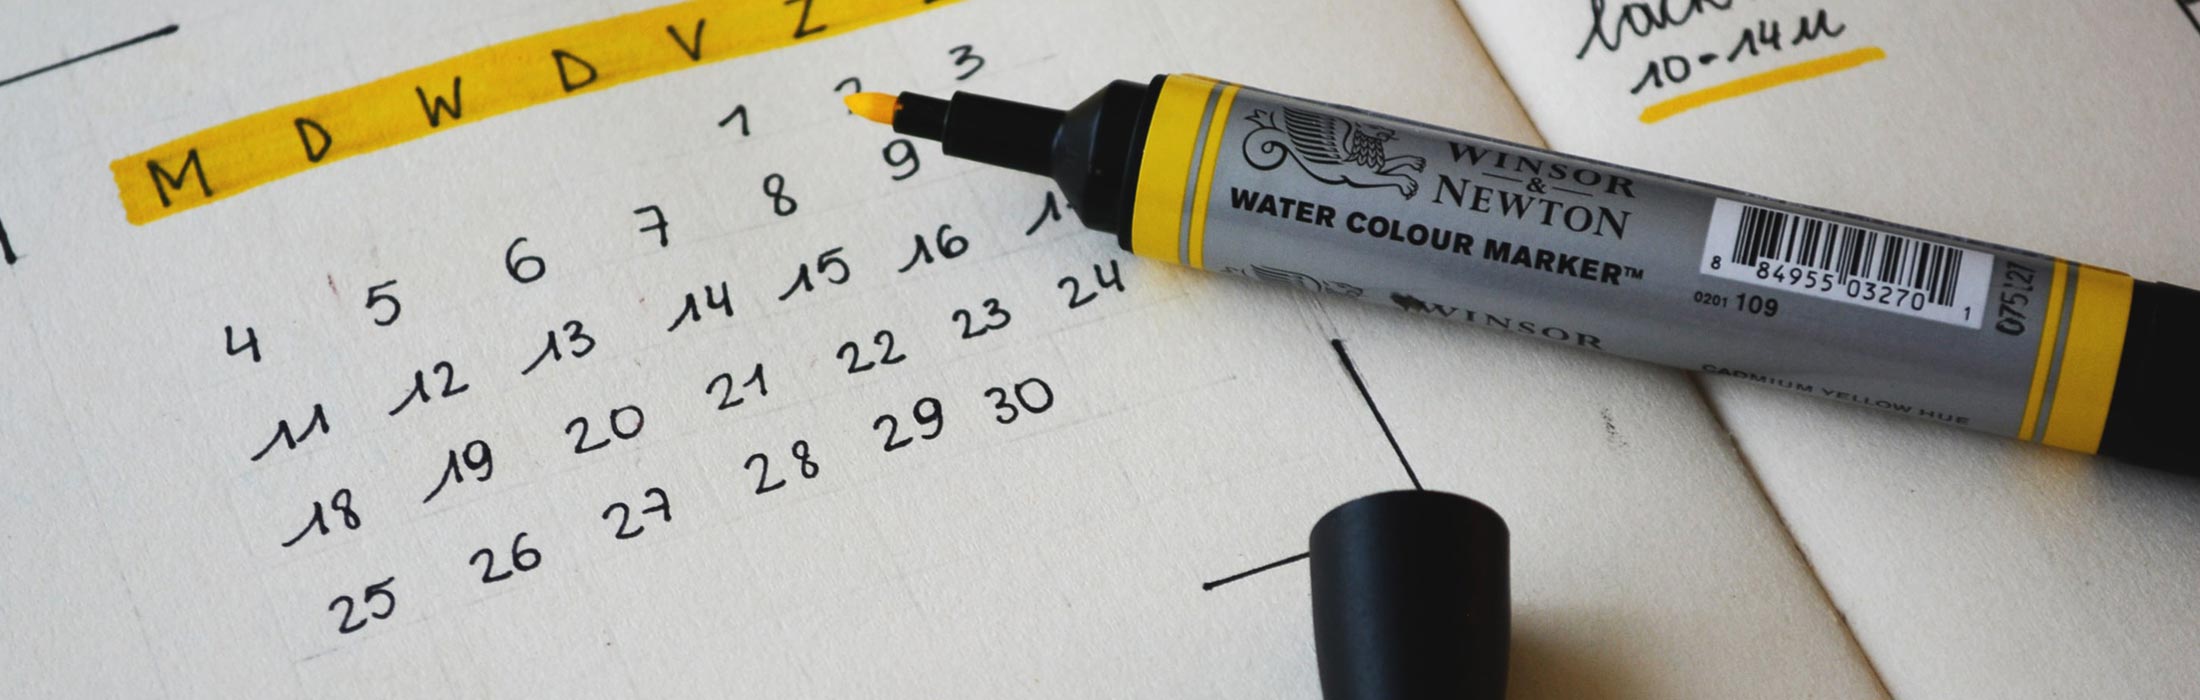 M D W D V Z
1 2 3
4 5 6 7 8 9
11 12 13 14 15 16
18 19 20 21 22 23 24
25 26 27 28 29 30
10-14u
WINSOR
&
NEWTON
WATER COLOUR MARKER™
8 84955 03270 1
0201 109
WINSOR
CADMIUM YELLOW HUE